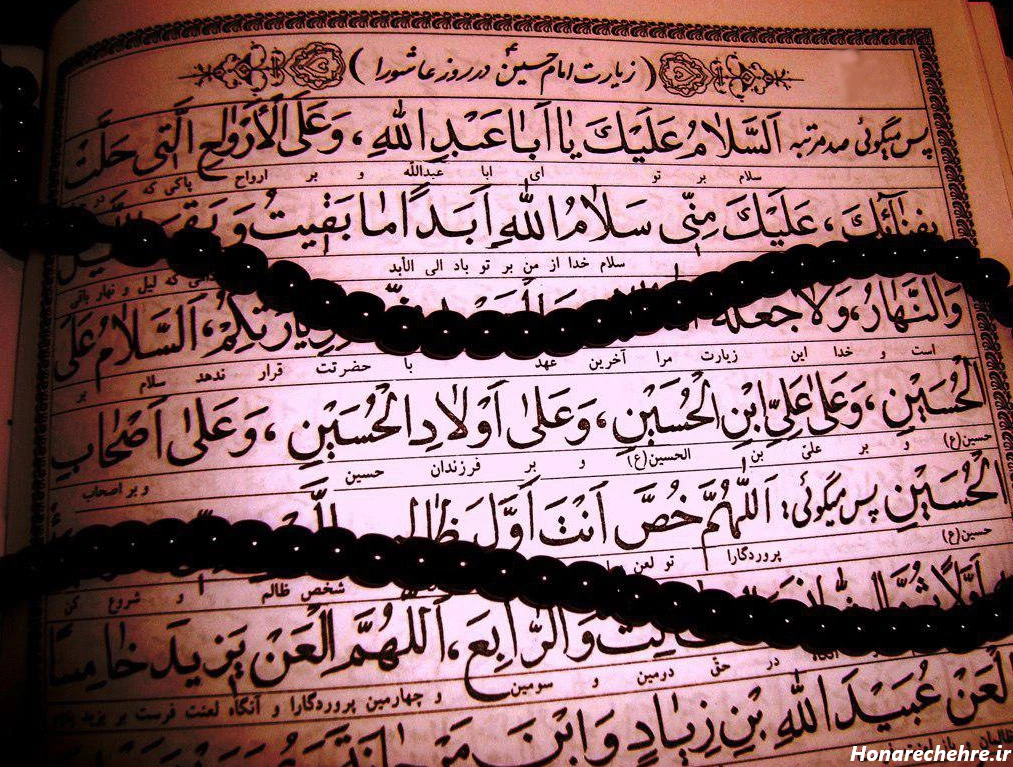 (زیارت امام حسین ع در روز عاشورا)
پس میگوئی صد مرتبه اَلسَّلامُ عَلَیْكَ یا اَبا عَبْدِ اللهِ، وَعَلَی الْأَرْواحِ الَّتی حَلَّتْ
سلام بر تو ای ابا عبدالله و بر ارواح پاکی که در
بِفِنائِكَ، عَلَیْكَ مِنّی سَلامُ اللهِ اَبَدًا ما بَقیتُ وَ بَقِیَ اللَّیْلُ
سلام خدا از من بر تو باد الی الأبد که لیل و نهار باقی
وَالنَّهارُ، وَلا جَعَلَهُ زِیارَتِکُمْ، اَلسَّلامُ عَلَی
است و خدا این زیارت مرا آخرین عهد با حضرتت قرار ندهد سلام بر
الْحُسَیْنِ، وَعَلی عَلِیِّ ابْنِ الْحُسَیْنِ، وَعَلی اَوْلادِ الْحُسَیْنِ، وَعَلی اَصْحابِ
حسین(ع) و بر علیّ بن الحسین(ع) و بر فرزندان حسین و بر اصحاب
الْحُسَیْنِ پس میگوئی: اَللّهُمَّ خُصَّ اَنْتَ اَوَّلَ ظالِمٍ
حسین(ع) پروردگارا تو لعن شخص ظالم و شروع کن
اَوَّلًا ثُمَّ وَالرّابِعَ، اَللّهُمَّ الْعَنْ یَزیدَ خامِسًا
در حقّ دومین و سومین و چهارمین پروردگارا و آنگاه لعنت فرست بر یزید
الْعَنْ عُبَیْدَ اللهِ بْنِ زِیادٍ وَابْنَ مَرْجانَةَ
Honarechehre.ir